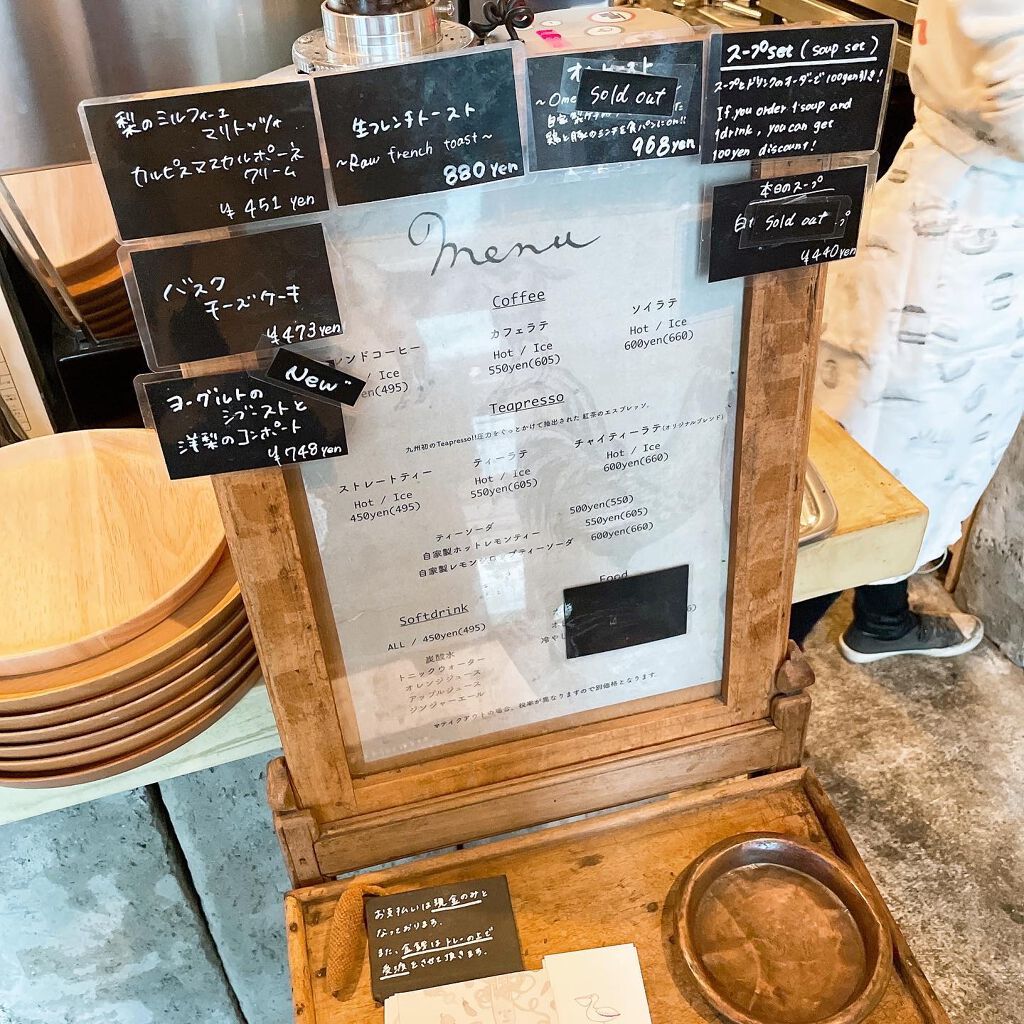 梨のミルフィーユ
マリトッツォ
カルピスマスカルポーネ
クリーム
¥451 yen
生フレンチトースト
~Raw french toast~
880 yen
~Ome
Sold out
968 yen
スープset (soup set)
スープとドリンクのオーダーで100yen引き!
If you order 1 soup and
1drink, you can get
100yen discount!
本日のスープ
Sold out
¥440yen
バスク
チーズケーキ
¥473yen
New
ヨーグルトの
シブーストと
洋梨のコンポート
¥748yen
Menu
Coffee
レンドコーヒー
/ Ice
en(495)
カフェラテ
Hot / Ice
550yen(605)
ソイラテ
Hot / Ice
600yen(660)
Teapresso
九州初のTeapresso!!圧力をぐっとかけて抽出された 紅茶のエスプレッソ。
ストレートティー
Hot / Ice
450yen(495)
ティーラテ
Hot / Ice
550yen(605)
チャイティーラテ(オリジナルブレンド)
Hot / Ice
600yen(660)
ティーソーダ 500yen(550)
自家製ホットレモンティー 550yen(605)
自家製レモンシロップティーソーダ 600yen(660)
Softdrink
ALL / 450yen(495)
炭酸水
トニックウォーター
オレンジジュース
アップルジュース
ジンジャーエール
Food
冷やし
※テイクアウトの場合、税率が異なりますので別価格となります。
お支払いは現金のみと
なっております。
また、金銭はトレーの上で
受渡しとさせて頂きます。